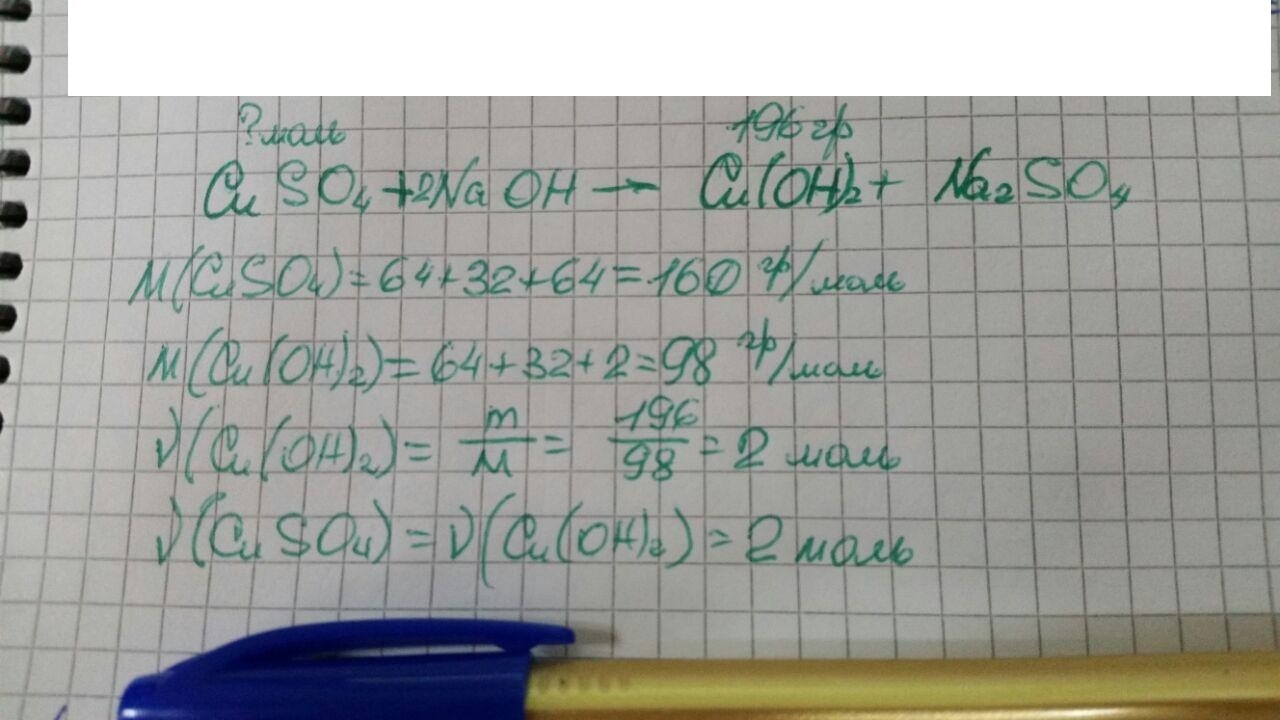 ?моль 196 гр
CuSO₄ + 2NaOH → Cu(OH)₂ + Na₂SO₄
M(CuSO₄) = 64+32+64 = 160 гр/моль
M(Cu(OH)₂) = 64+32+2 = 98 гр/моль
ν(Cu(OH)₂) = m/M = 196/98 = 2 моль
ν(CuSO₄) = ν(Cu(OH)₂) = 2 моль